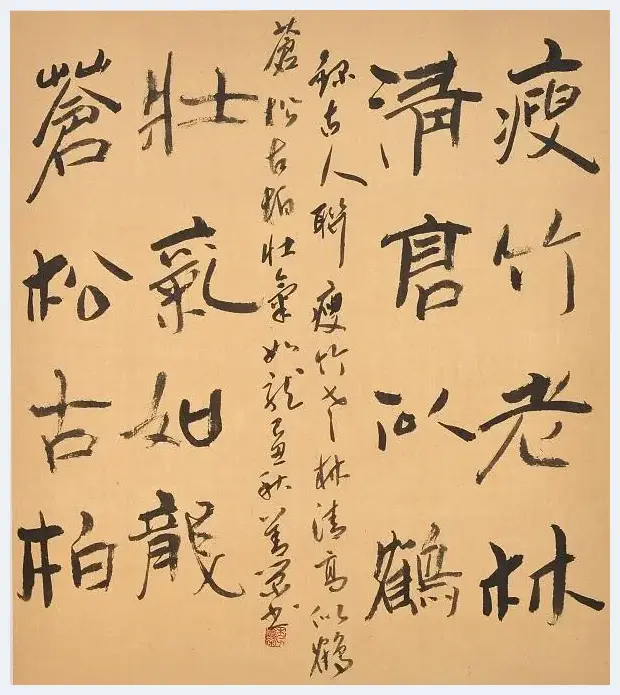 瘦竹老林
清高以鶴
蒼松古柏
壯氣如龍
録古人聯 瘦竹老林清高似鶴
蒼松古柏壯氣如龍己丑秋書